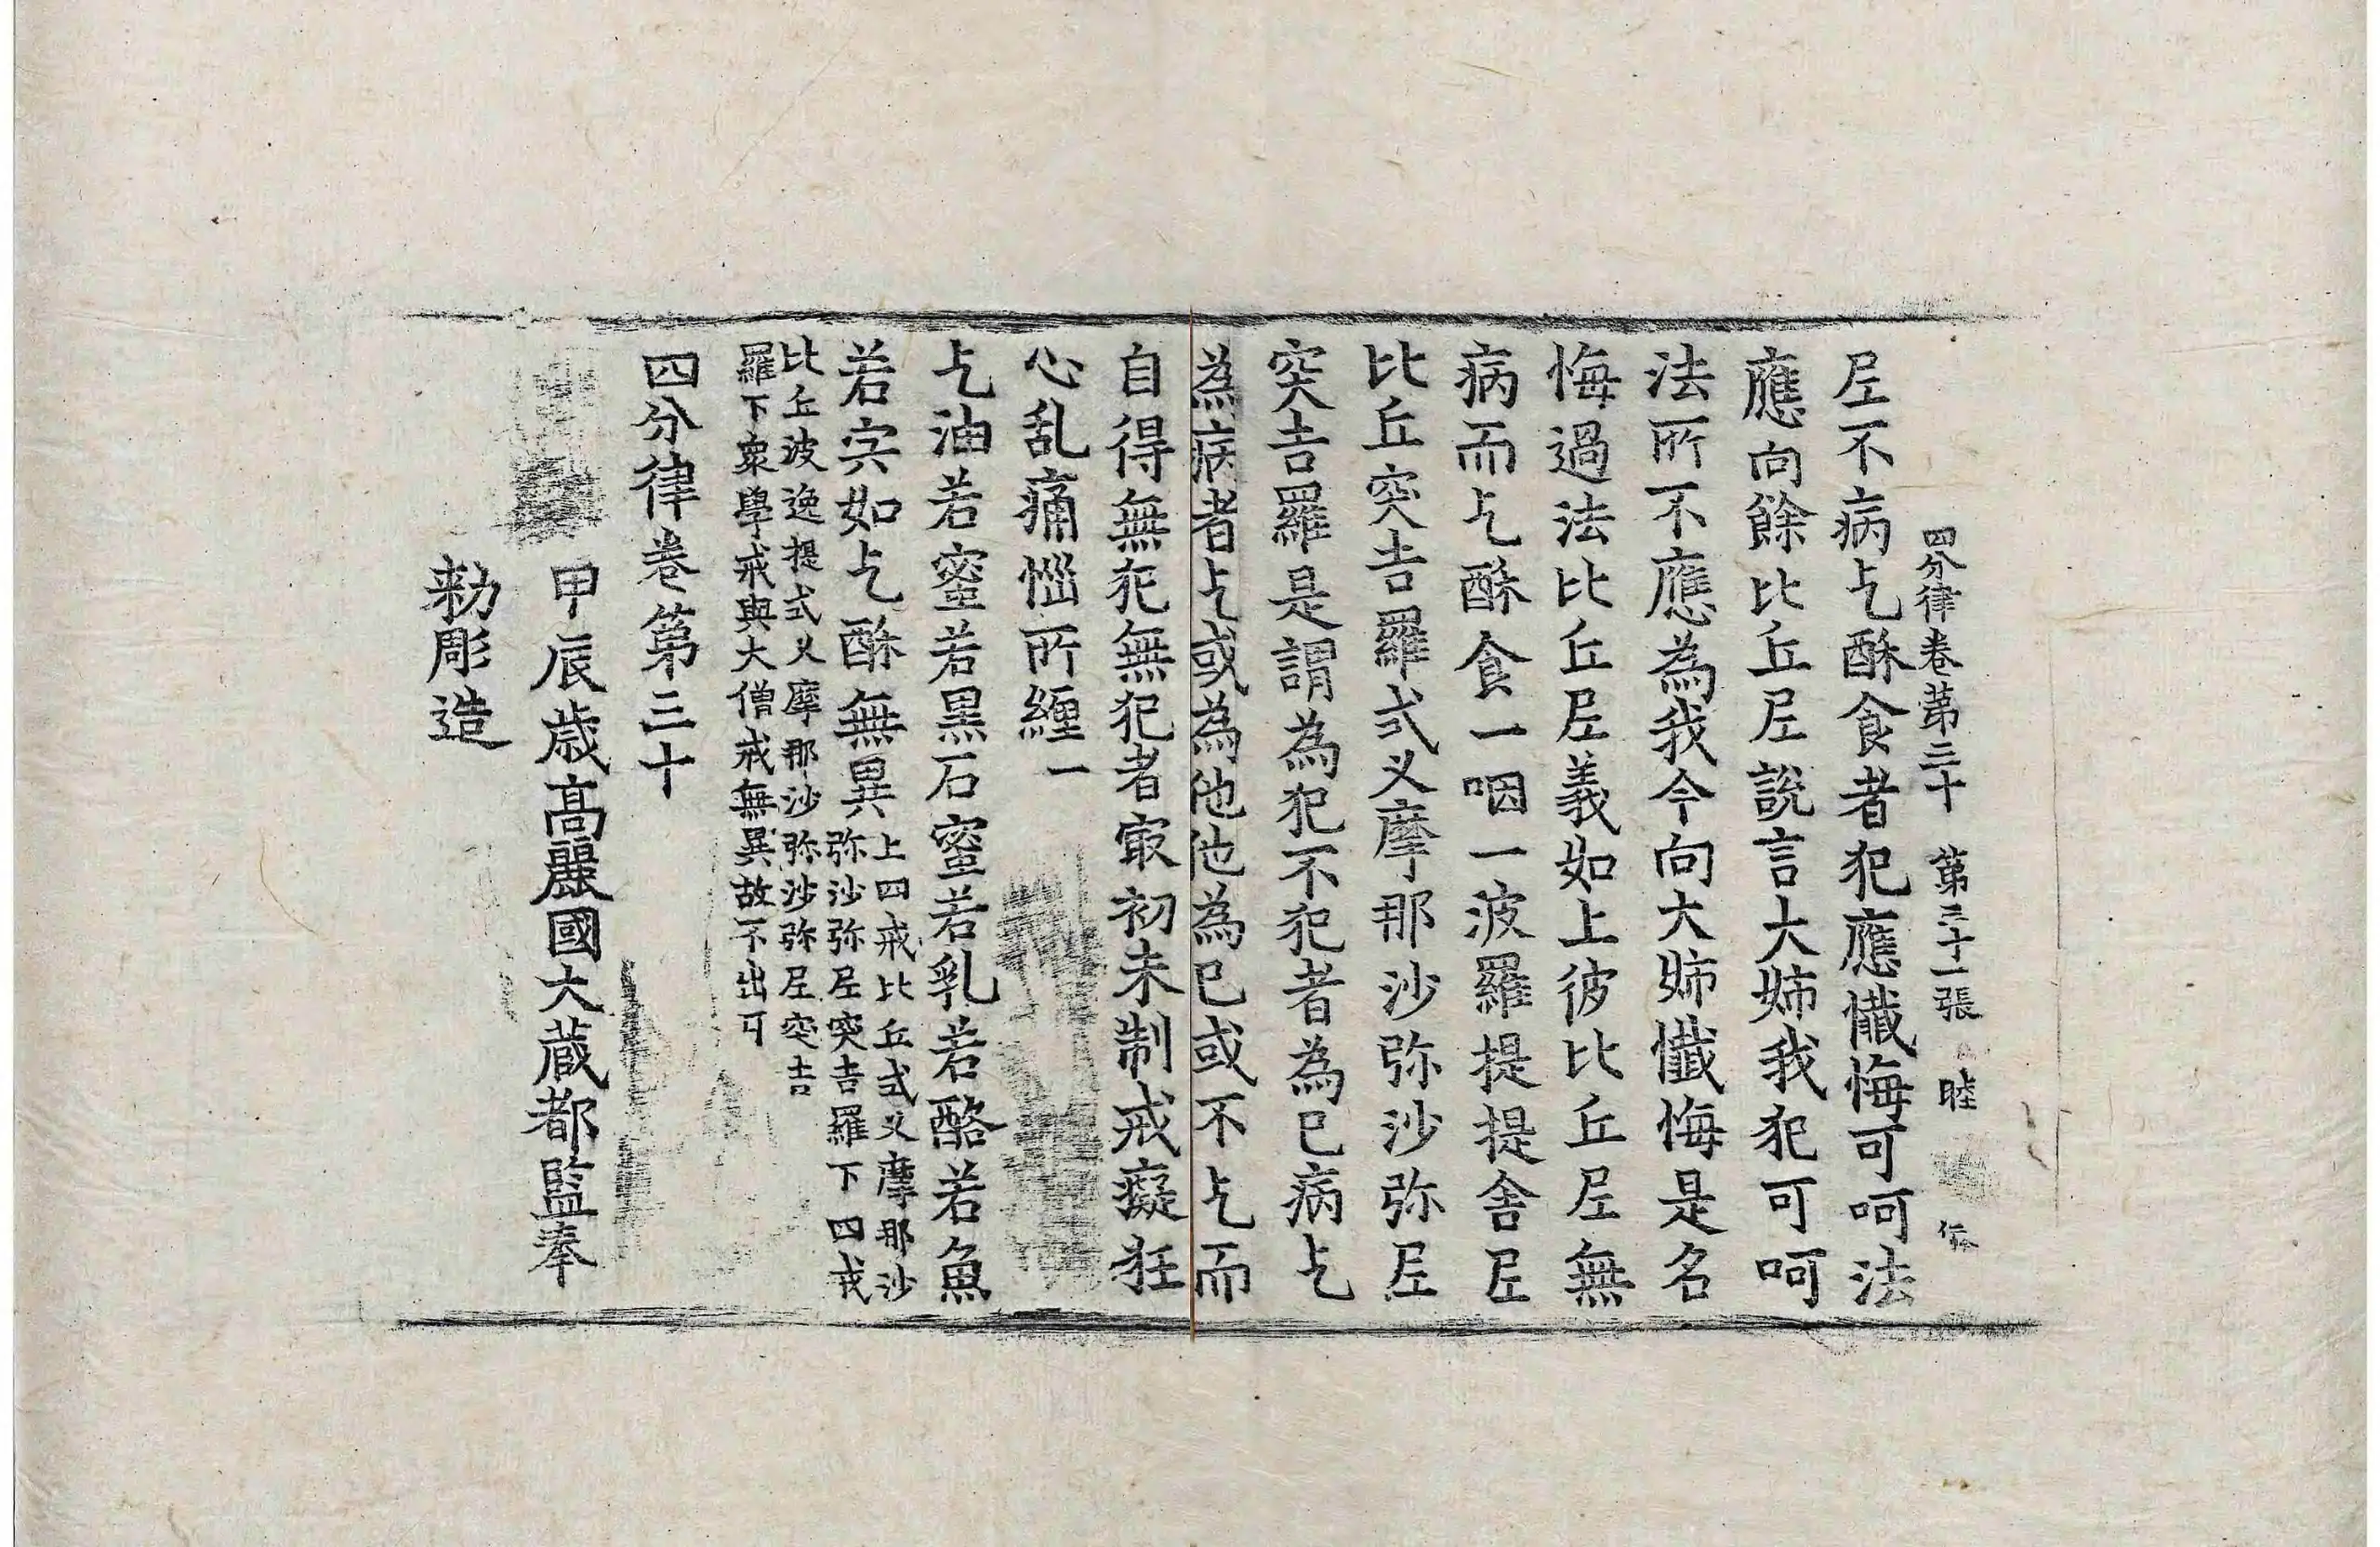 四分律卷第三十 第三十一張 睦
尼不病乞酥食者犯應懺悔可呵法
應向餘比丘尼說言大姊我犯可呵
法所不應為我今向大姊懺悔是名
悔過法比丘尼義如上彼比丘尼無
病而乞酥食一咽一波羅提提舍尼
比丘突吉羅式叉摩那沙弥沙弥尼
突吉羅是謂為犯不犯者為已病乞
為病者乞或為他他為已或不乞而
自得無犯無犯者㝡初未制戒癡狂
心乱痛惱所纏一
乞油若蜜若黒石蜜若乳若酪若魚
若宍如乞酥無異上四戒比丘式叉摩那沙
弥沙弥尼突吉羅下四戒
比丘波逸提式叉摩那沙弥沙弥尼突吉
羅下衆學戒與大僧戒無異故不出可
四分律卷第三十
甲辰歳高麗國大蔵都監奉
勑彫造